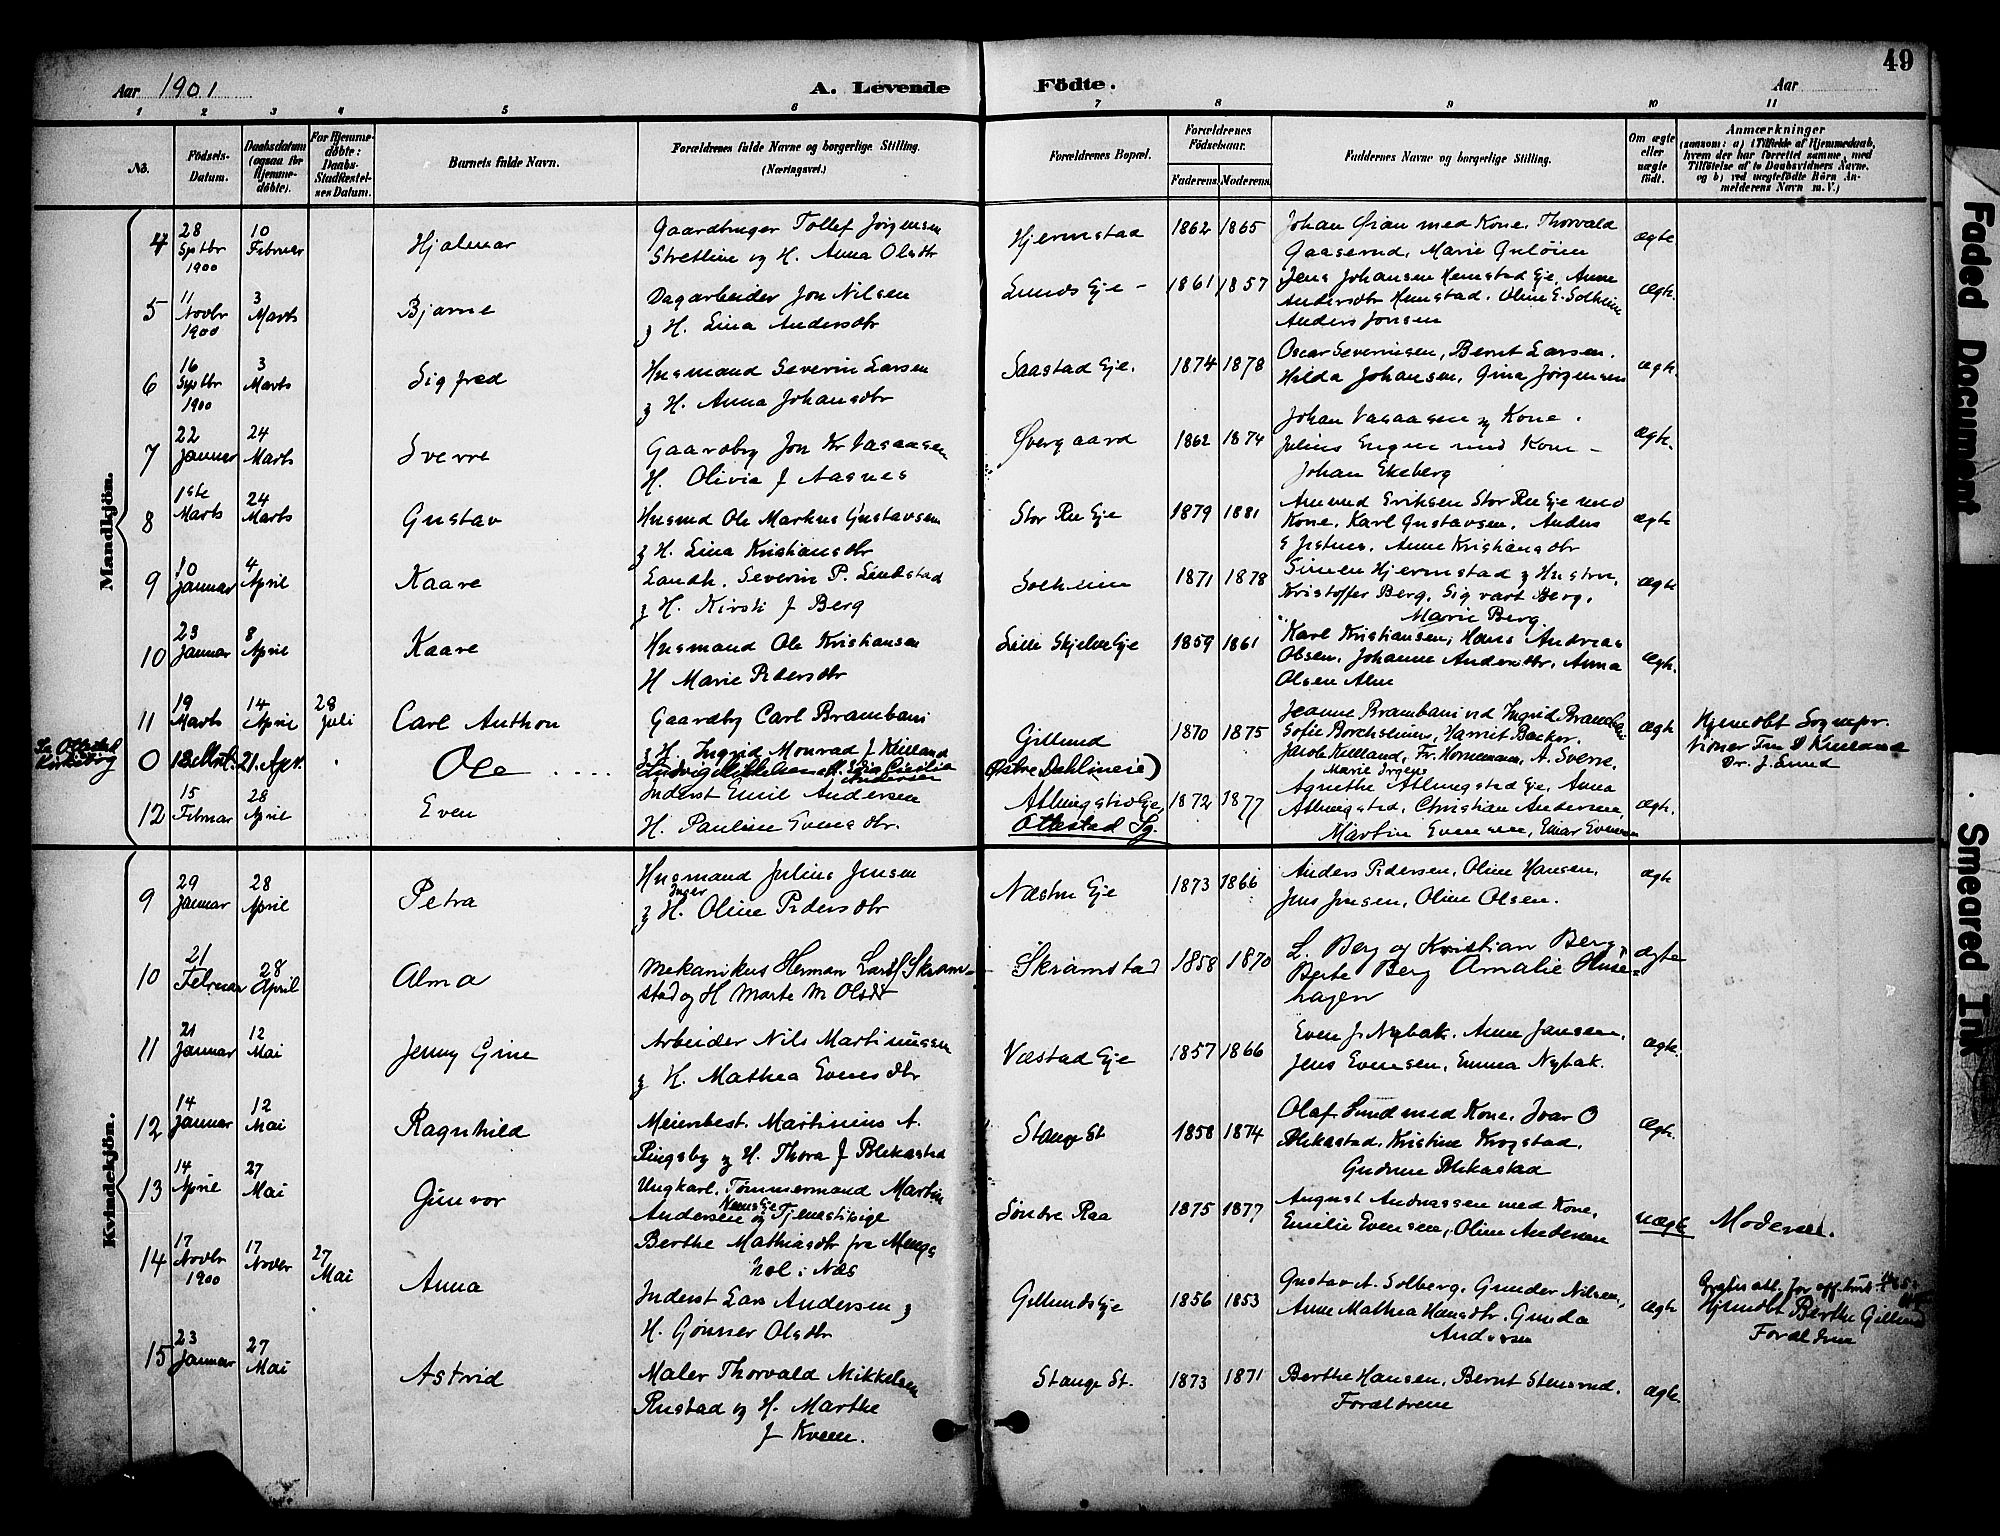 49
Aar 1901
A. Levende Födte.
Aar
1 2 3 4 5 6 7 8 9 10 11
No.
Födsels-Datum.
Daabsdatum (ogsaa for Hjemme-döbte).
For Hjemme-döbte: Daabs-Stadfæstel-ses Datum.
Barnets fulde Navn.
Forældrenes fulde Navne og borgerlige Stilling.
(Næringsvei.)
Forældrenes Bopæl.
Forældrenes Födselsaar.
Faderens. Moderens.
Faddernes Navne og borgerlige Stilling.
Om ægte eller uægte födt.
Anmærkninger
(saasom: a) i Tilfælde af Hjemmedaab, hvem der har forrettet samme, med Tilföielse af to Daabsvidners Navne, og b) ved uægtefödte Börn An-melderens Navn m. V.)
Mandkjön.
4 28 Septbr 1900 10 Februar Hjalmar Gaardbruger Tollef Jörgensen
og H. Anna Olsdtr Hjermstad 1862 1865 Johan med Kone, Thorvald
Gaaserud, Marie ægte
5 11 Novbr 1900 3 Marts Bjarne Dagarbeider Jon Nilsen
og H. Lina Andersdtr Lunds Eje 1861 1857 Jens Johansen Hemstad Eje, Anne
Andersdtr Hemstad, Oline E. Solheim
Anders Jonsen ægte
6 16 Septbr 1900 3 Marts Sigfred Husmand Severin Larsen
og H. Anna Johansdtr Saastad Eje. 1874 1878 Oscar Severinsen, Bernt Larsen.
Hilda Johansen, Gina Jörgensen ægte
7 22 Januar 24 Marts Sverre Gaardbg Jon Kr Vasaasen
H. Olivia f Aasnes Övergaard 1862 1874 Johan Vasaasen og Kone.
Julius Engen med Kone -
Johan Ekeberg ægte
8 1ste Marts 24 Marts Gustav Husmd Ole Markus Gustavsen
og H. Lina Kristiansdtr Stor Ree Eje 1879 1881 Amund Eriksen Stor Ree Eje med
Kone, Karl Gustavsen, Anders
Anne Kristiansdtr ægte
9 10 Januar 4 April Kaare Landh. Severin P. Lindstad
og H. Kirsti f Berg Solheim 1871 1878 Simen Hjermstad og Hustru,
Kristoffer Berg, Sigvart Berg,
Marie Berg. ægte
10 23 Januar 8 April Kaare Husmand Ole Kristiansen
H Marie Pedersdtr Lille Skjelve Eje 1859 1861 Karl Kristiansen, Hans Andreas
Olsen, Johanne Andersdtr, Anna
Olsen Alm ægte
11 19 Marts 14 April 28 Juli Carl Anthon Gaardbg Carl Brambani
og H. Ingrid Monrad f Kielland Gillund 1870 1875 Jeanne Brambani ved Ingrid Brambani
Sofie Borchsenius, Harriet Backer,
Jacob Kielland, Fr. Hornemann, A. Sverre. ægte Hjemdöbt Sognepr.
Dr. J. Lund
Se Ottestad Kirkebog 0 21. Apr. Ole
(Östre Dahlineie)
12 15 Februar 28 April Even Inderst Emil Andersen
H. Pauline Evensdtr. Atlungstad Eje
Ottestad Sg. 1872 1877 Marie
Agnethe Atlungstad Eje, Anna
Atlungstad, Christian Andersen,
Martin Evensen, Einar Evensen ægte
Kvindekjön.
9 29 Januar 28 April Petra Husmand Julius Jensen
og H. Inger Oline Pedersdtr Næstu Eje 1873 1866 Anders Pedersen, Oline Hansen,
Jens Jensen, Oline Olsen. ægte
10 21 Februar 28 April Alma Mekanikus Herman Skram-
stad og H Marte M Olsdt Skramstad 1858 1870 L. Berg og Kristian Berg
Berte Berg Amalie Huse-
hagen ægte
11 21 Januar 12 Mai Jenny Gine Arbeider Nils Martinussen
og H. Mathea Evensdtr Væstad Eje 1857 1866 Even J. Nybak, Anne Jansen,
Jens Evensen, Emma Nybak. ægte
12 14 Januar 12 Mai Ragnhild Meieribest. Martinius A.
Ringsby og H. Thora f Blikastad Stange St 1858 1874 Olaf Lund med Kone, Ivar O
Blikastad, Kristine Krogstad,
Gudrun Blikastad ægte
13 14 April 27 Mai Gunvor Ungkarl, Tömmermand Martin
Andersen og Tjenestepige
Berthe Mathiasdtr fra
i Næs Söndre Raa 1875 1877 August Andreassen med Kone,
Emilie Evensen, Oline Andersen uægte Moderen.
14 17 Novbr 1900 17 Novbr 27 Mai Anna Inderst Lars Andersen og
H. Gönner Olsdtr Gillunds Eje 1856 1853 Gustav A. Solberg, Gunder Nilsen,
Anne Mathea Hansdtr, Gunda
Andersen ægte Gratis att. for off. brug
Hjemdöbt Berthe Gillund
Forældrene
15 23 Januar 27 Mai Astrid Maler Thorvald Mikkelsen
Rustad og H. Marthe
f Kveen. Stange St. 1873 1871 Berthe Hansen, Bernt Stensrud,
Forældrene ægte
Faded Document
Smeared Ink